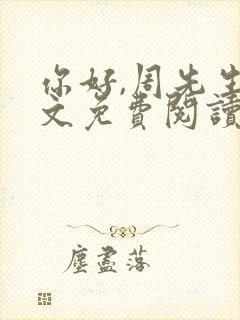 你好,周先生
文免費閱讀
塵盡落